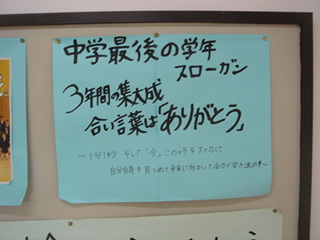 中学最後の学年
スローガン
3年間の集大成
合い言葉は「ありがとう」
～1分1秒 そして「今、この時を大切に
自分自身を見つめて未来に向かって全力で突き進め!～